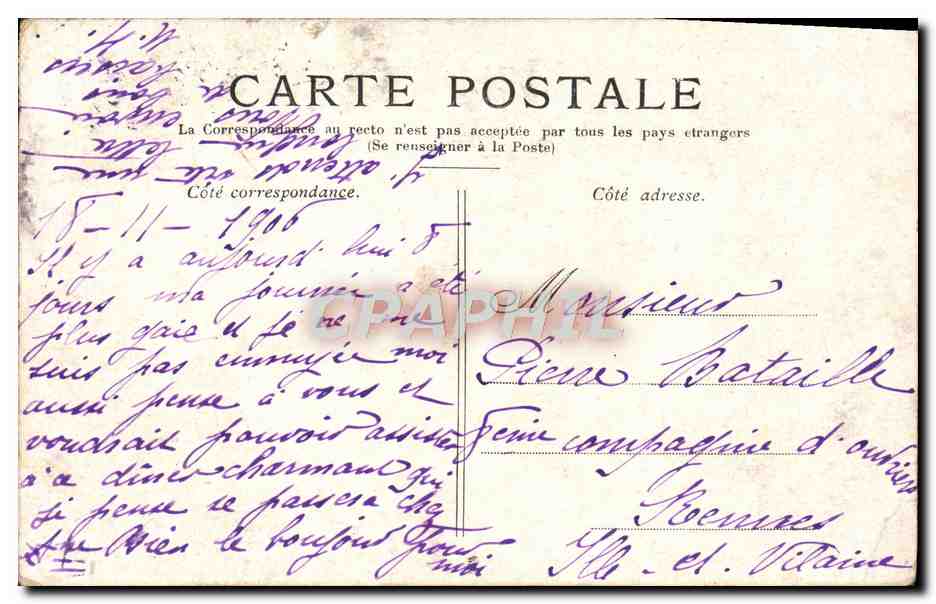 CARTE POSTALE
La Correspondance au recto n'est pas acceptée par tous les pays etrangers
(Se renseigner à la Poste)
Côté correspondance.
Côté adresse.
18 - 11 - 1906
Il y a aujourd'hui 8
jours ma journée a été
plus gaie et je ne me
suis pas ennuyée moi
aussi pense à vous et
voudrait pouvoir assister
à ce dîner charmant qui
je pense se passera chez
Bien le bonjour pour
moi
J'attends une
longue lettre
vous envoi
Monsieur
Pierre Bataille
8eme compagnie d'ouvriers
Rennes
Ille-et-Vilaine
CPAPHIL